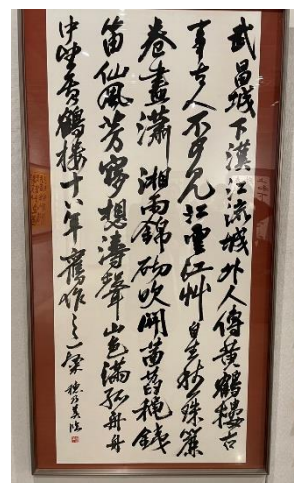 武昌城下漢江流城外人傳黃鶴樓古
事古人不可見江雲江艸自生秋珠簾
卷盡瀟湘雨錦砌吹開菡萏穐鐵
笛仙風夢想濤聲山色滿孤舟舟
中望黃鶴樓十八年舊作之一